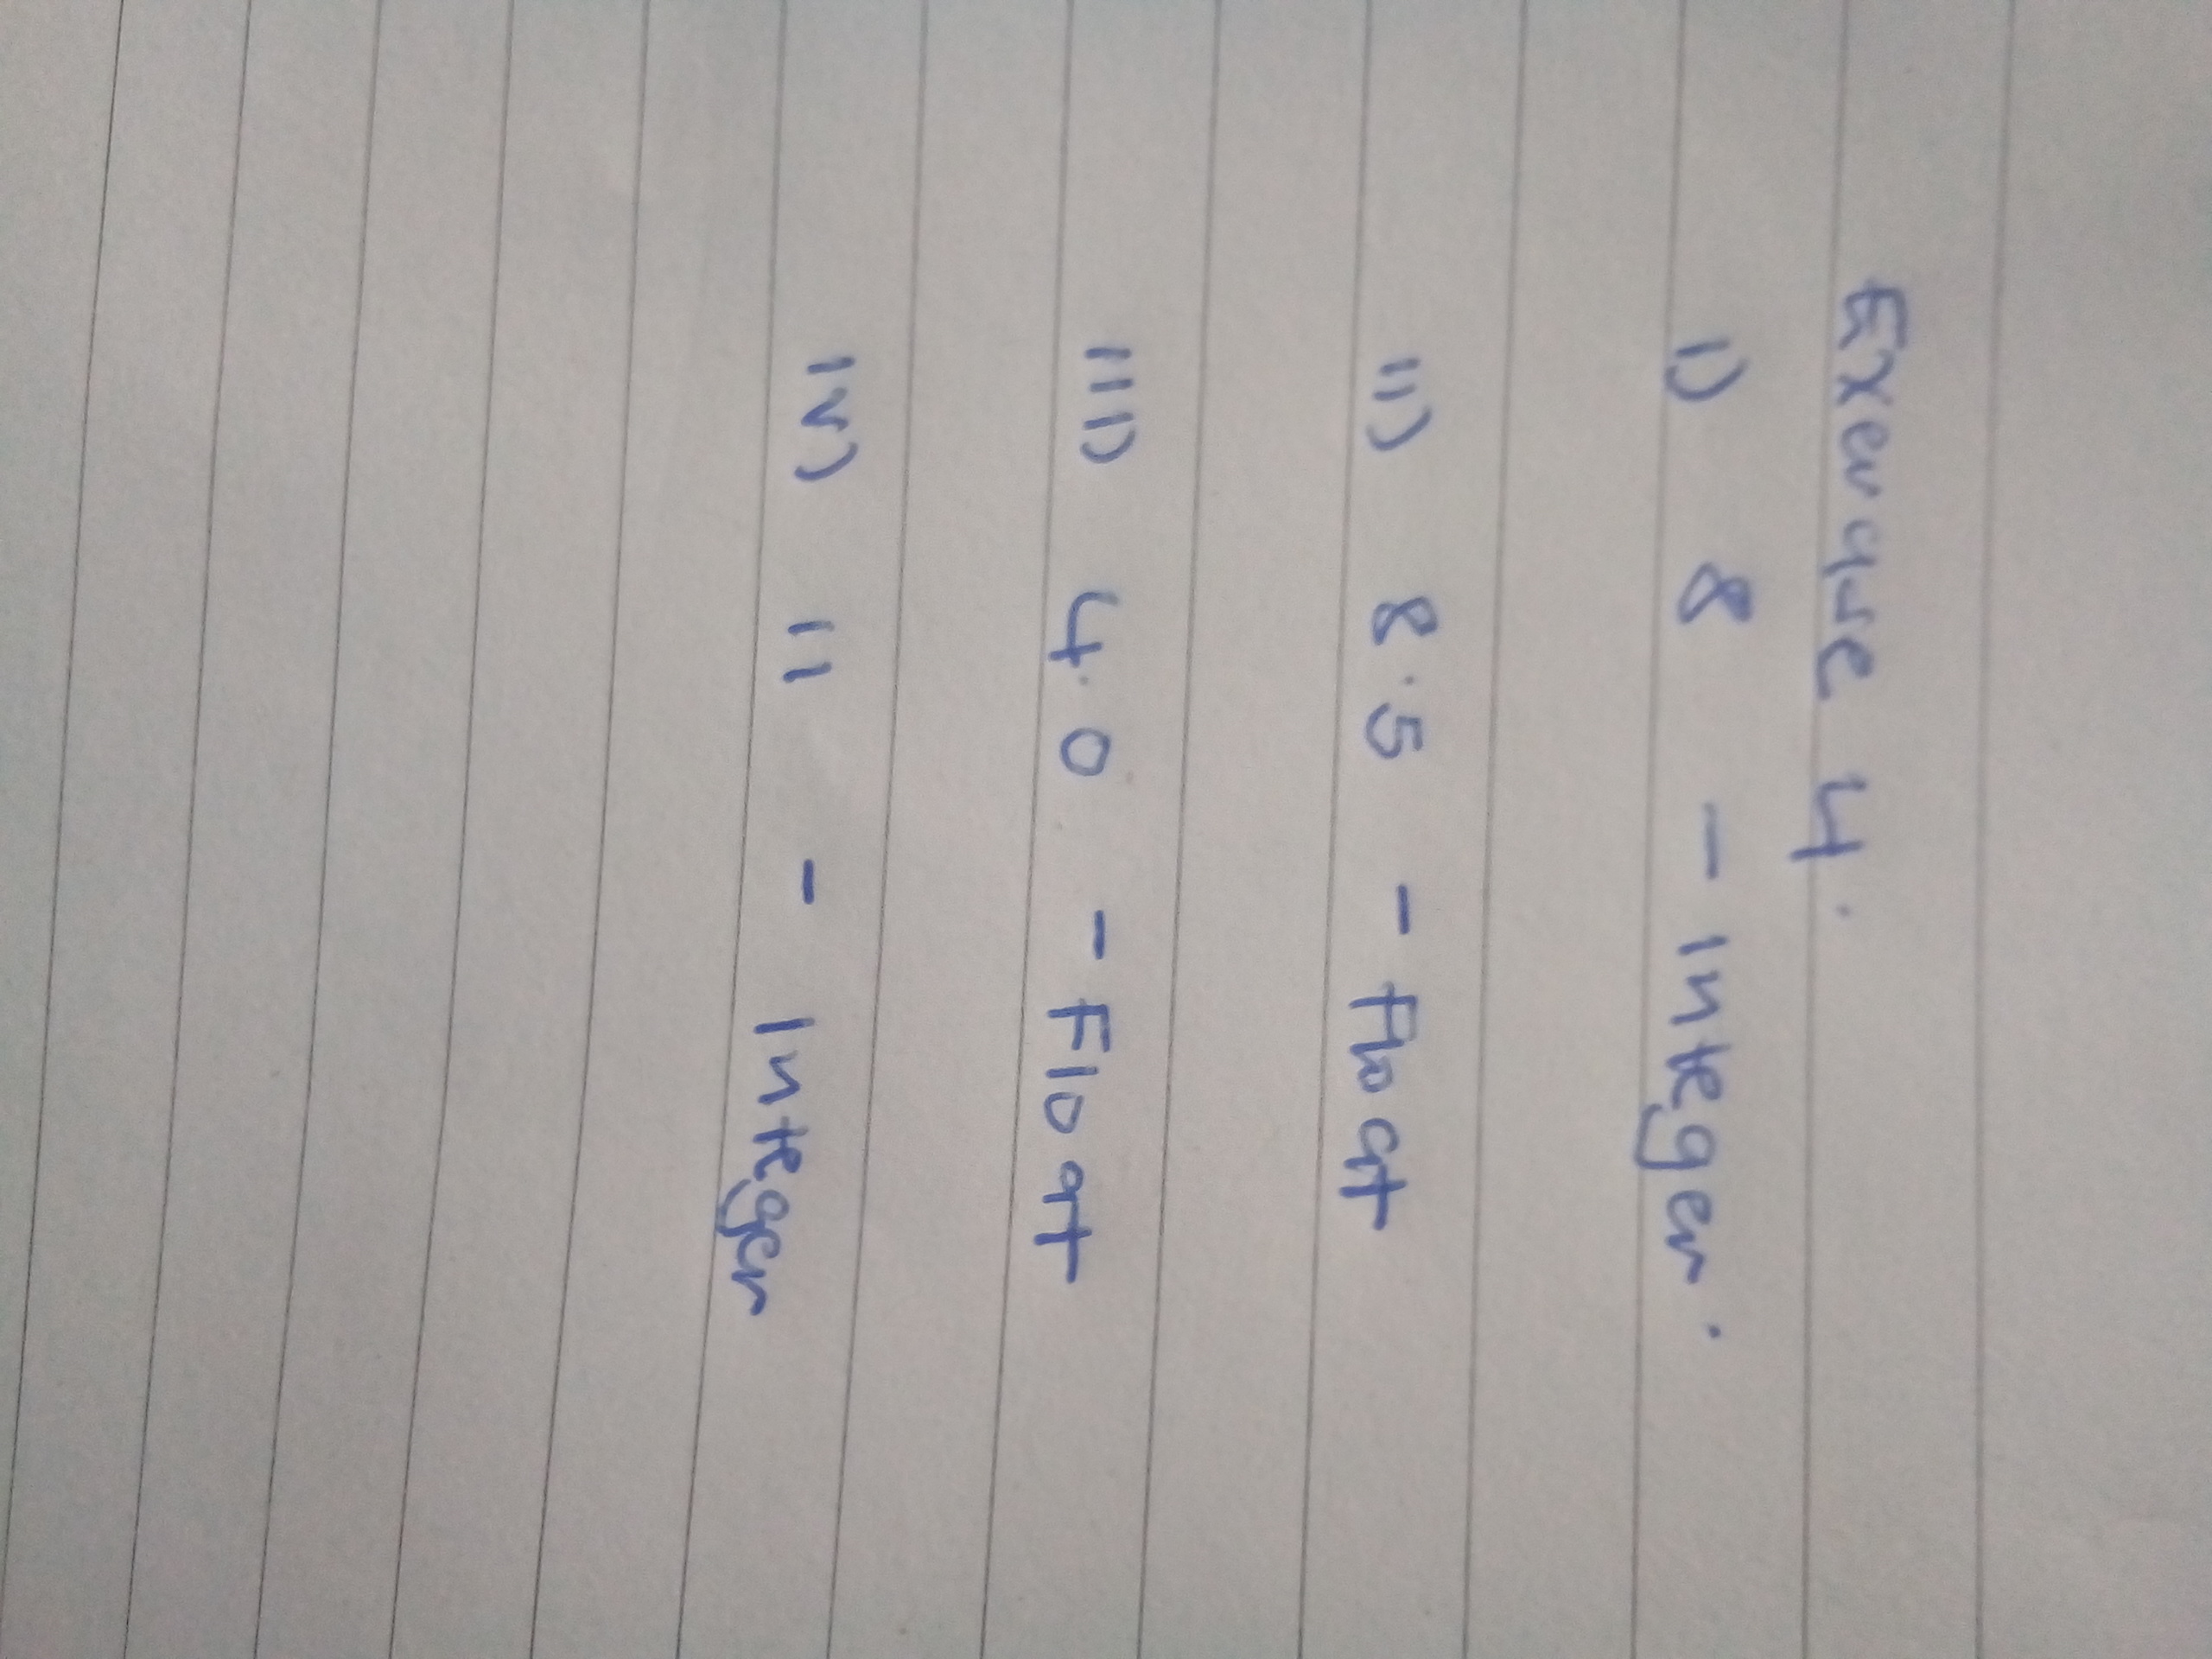 Exercise 4.
i) 8 - Integer.
ii) 8.5 - Float
iii) 4.0 - Float
iv) 11 - Integer